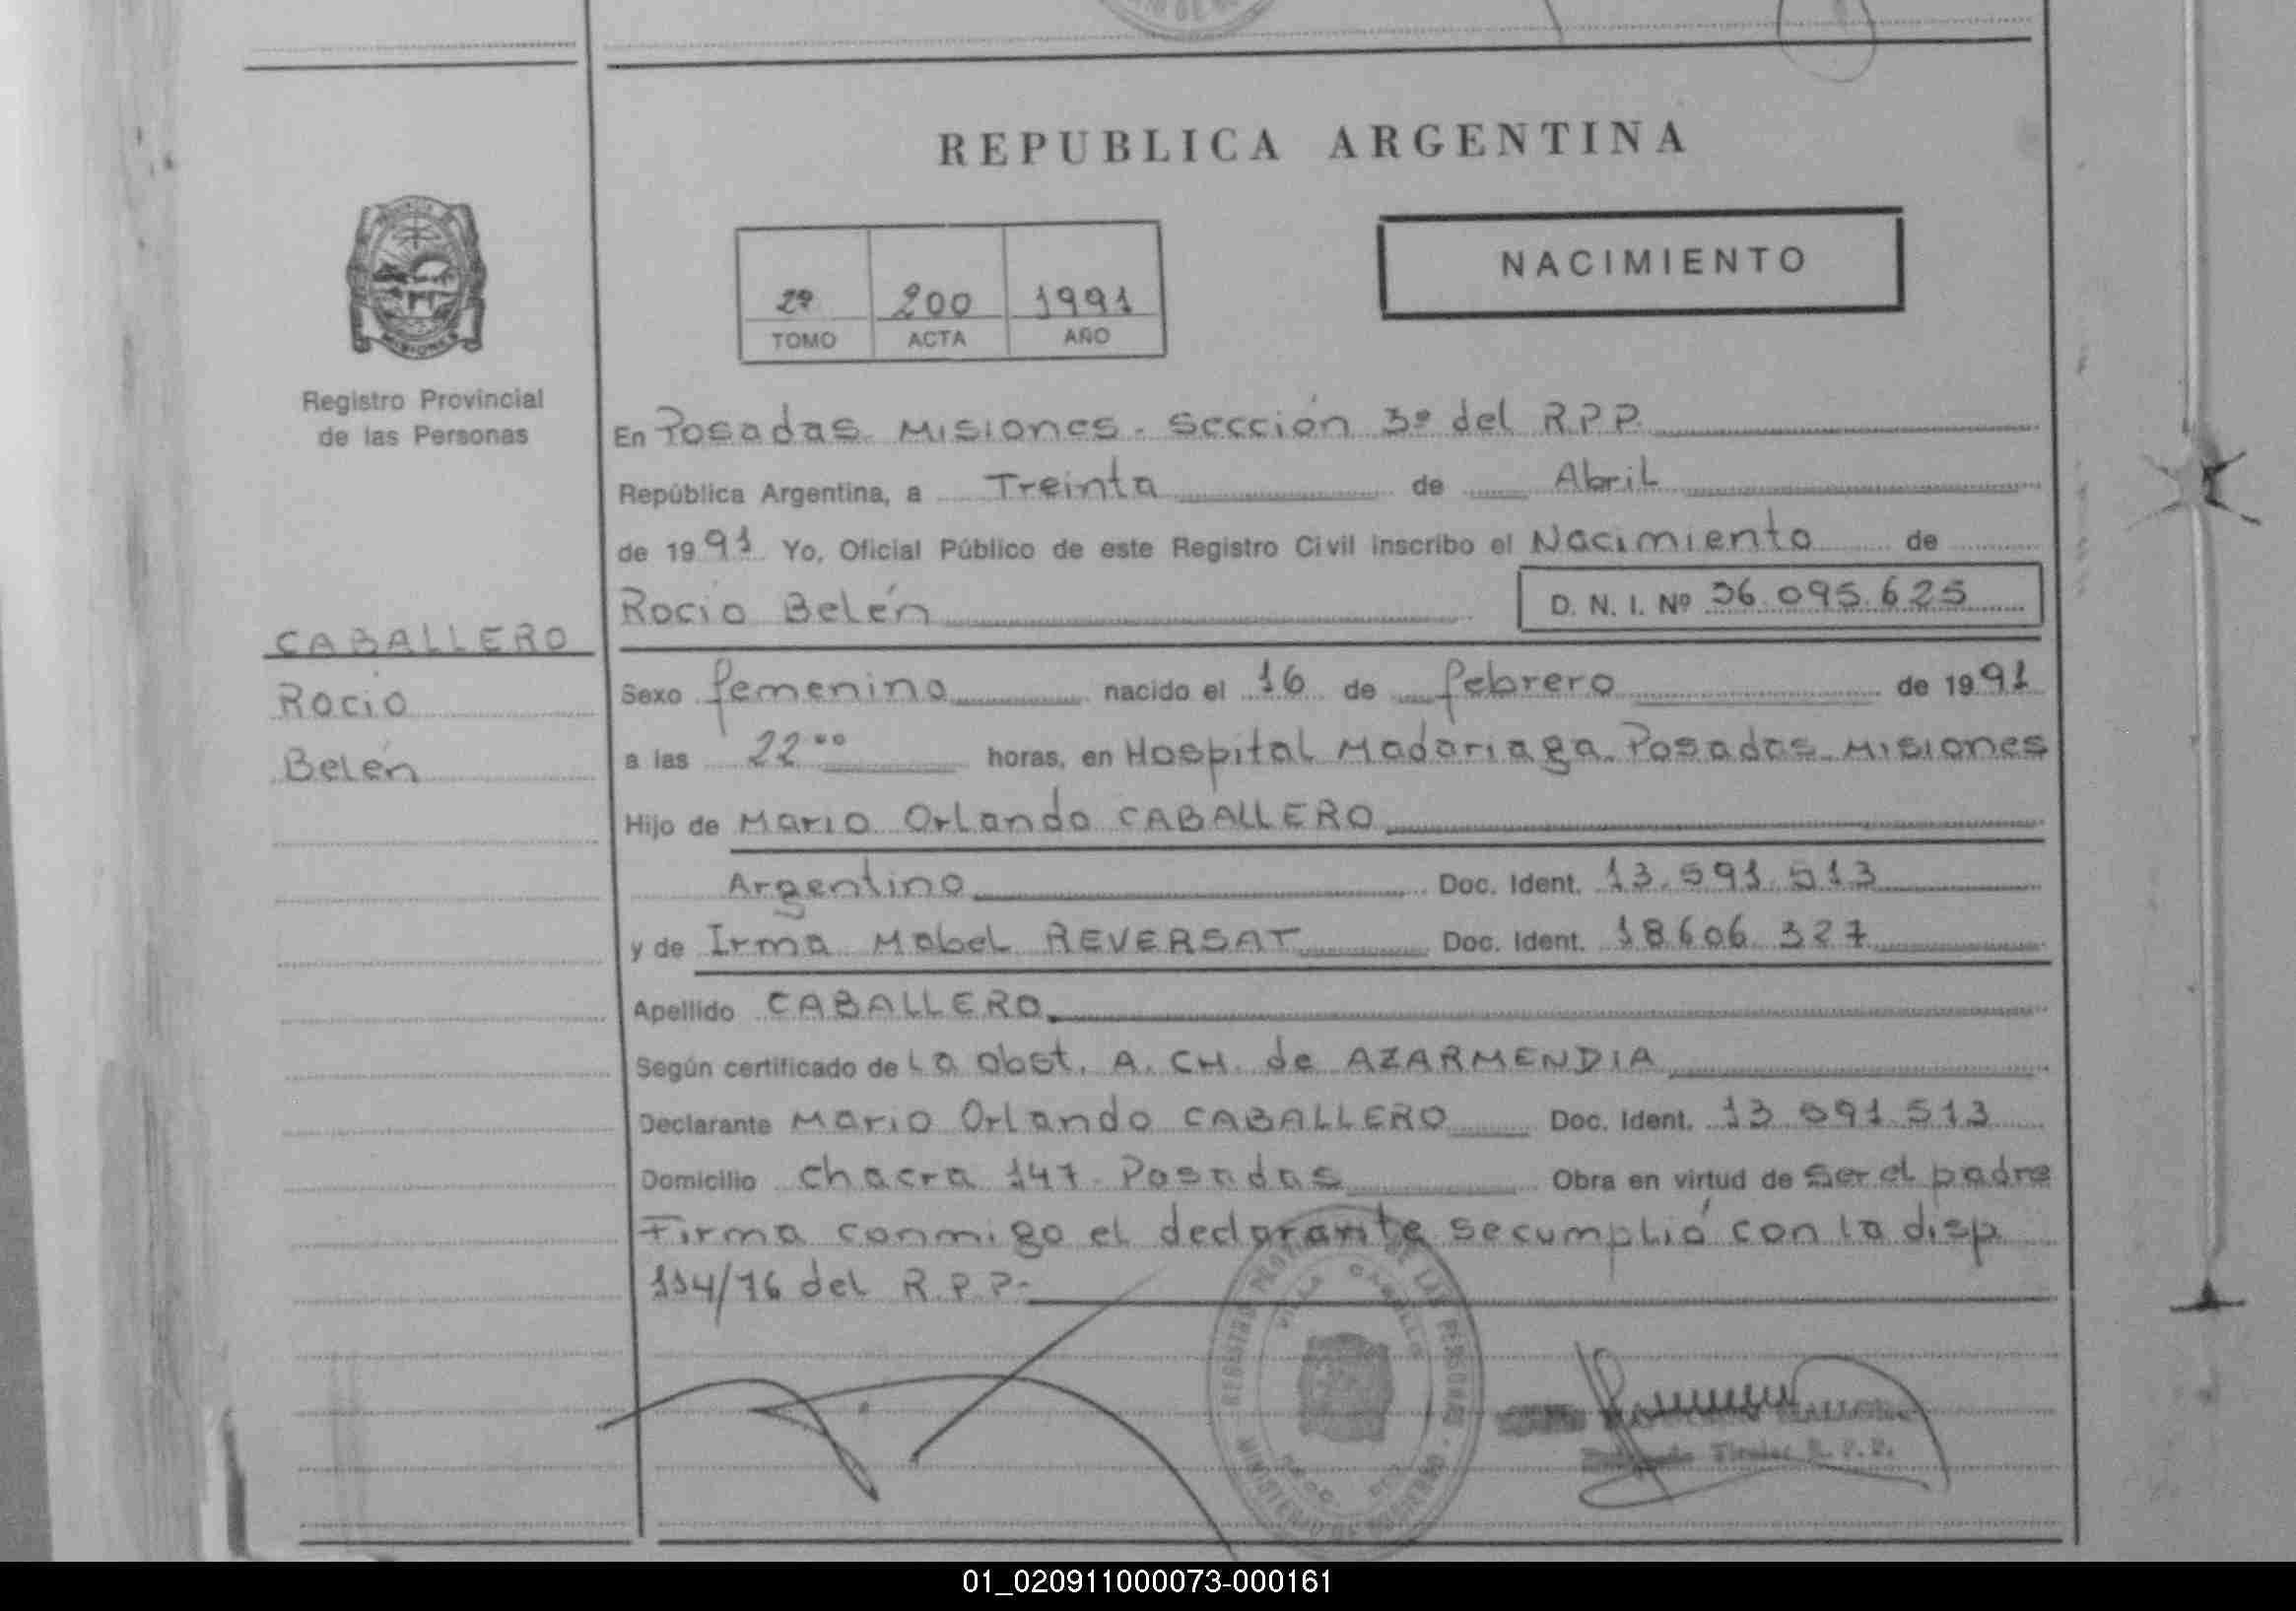 REPUBLICA ARGENTINA
NACIMIENTO
2º 200 1991
TOMO ACTA AÑO
MISIONES
Registro Provincial
de las Personas
En Posadas Misiones. Sección 3º del R.P.P.
República Argentina, a Treinta de Abril
de 1991 Yo, Oficial Público de este Registro Civil inscribo el Nacimiento de
Rocio Belén D. N. I. Nº 36.095.625
CABALLERO
Rocio
Belén
Sexo femenino nacido el 16 de febrero de 1991
a las 22 00 horas, en Hospital Madariaga. Posadas. Misiones
Hijo de Mario Orlando CABALLERO
Argentino Doc. Ident. 13.591.513
y de Irma Mabel REVERSAT Doc. Ident. 18.606.327
Apellido CABALLERO.
Según certificado de La Obst. A. CH. de AZARMENDIA
Declarante Mario Orlando CABALLERO Doc. Ident. 13.591.513
Domicilio chacra 147. Posadas Obra en virtud de Ser el padre
Firma conmigo el declarante se cumplió con la disp
114/76 del R.P.P.-
REGISTRO PROVINCIAL DE LAS PERSONAS
VILLA CABELLO
MINISTERIO DE GOBIERNO
Titular R. P. P.
01_020911000073-000161